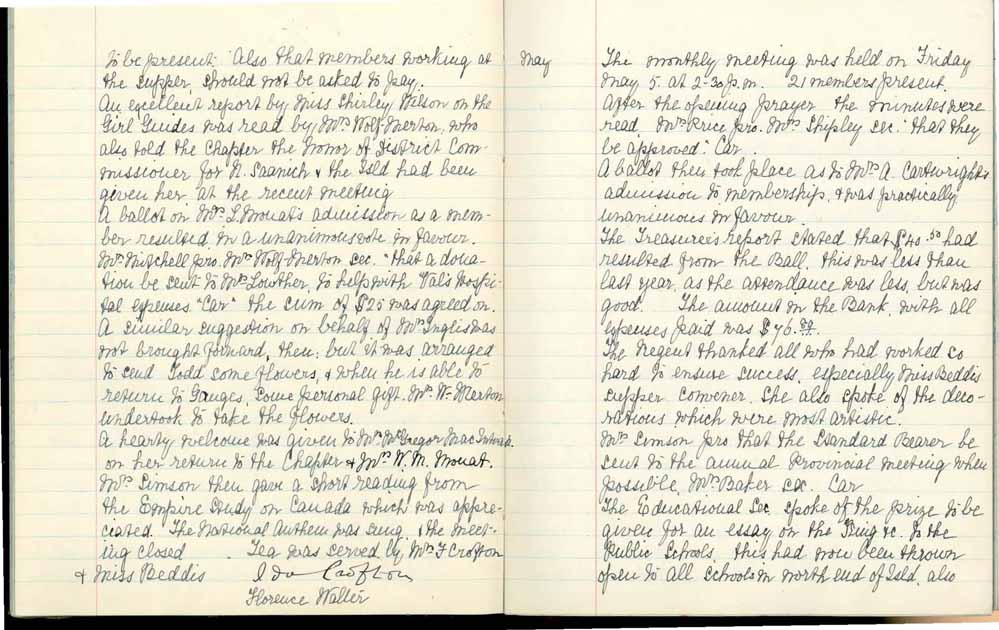 to be present. Also that members working at
the supper, should not be asked to pay.
An excellent report by Miss Shirley Wilson on the
Girl Guides was read by Mrs Wolf-Merton, who
also told the Chapter the honor of District Com-
missioner for N. Saanich & the Isld had been
given her at the recent meeting
A ballot on Mrs L. Mouat's admission as a mem-
ber resulted in a unanimous vote in favour.
Mrs Mitchell pro. Mrs Wolf-Merton sec. "that a dona-
tion be sent to Mrs Lowther, to help with Val's Hospi-
tal expenses "Car" the sum of $25 was agreed on.
A similar suggestion on behalf of Mrs Inglis was
not brought forward, then: but it was arranged
to send Todd some flowers, & when he is able to
return to Ganges, some personal gift. Mrs W. Merton
undertook to take the flowers.
A hearty welcome was given to Mrs McGregor Macintosh
on her return to the Chapter & Mrs W. M. Mouat.
Mrs Simson then gave a short reading from
the Empire Study on Canada which was appre-
ciated. The National Anthem was sung & the meet-
ing closed. Tea was served by Mrs F Crofton
& Miss Beddis
Florence Walter
May
The monthly meeting was held on Friday
May 5. at 2-30 p.m. 21 members present.
After the opening prayer the minutes were
read, Mrs Price pro. Mrs Shipley sec. "that they
be approved" Car.
A ballot then took place as to Mrs A. Cartwright's
admission to membership, & was practically
unanimous in favour.
The Treasurer's report stated that $40.50 had
resulted from the Ball, this was less than
last year, as the attendance was less, but was
good. The amount in the Bank, with all
expenses paid was $76.
The Regent thanked all who had worked so
hard to ensure success, especially Miss Beddis
supper convener. She also spoke of the deco-
rations which were most artistic.
Mrs Simson pro that the Standard Bearer be
sent to the annual Provincial meeting when
possible, Mrs Baker sec. Car
The Educational Sec. spoke of the prize to be
given for an essay on the King &c. to the
Public Schools, this had now been thrown
open to all schools in north end of Isld. also